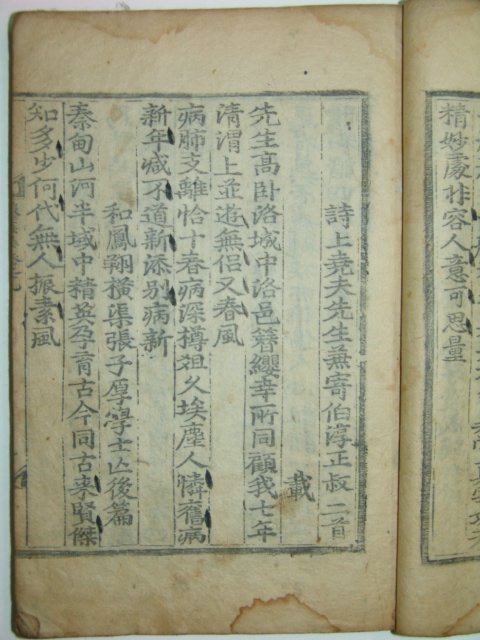 精妙處非容人意可思量
詩上堯夫先生兼寄伯淳正叔二首
載
先生高卧洛城中洛邑簪纓幸所同顧我七年
清渭上並遊無侶又春風
病肺支離恰十春病深樽俎久埃塵人憐舊病
新年减不道新添別病新
和鳳翔横渠張子厚學士亡後篇
秦甸山河半域中精英孕育古今同古来賢傑
知多少何代無人振素風